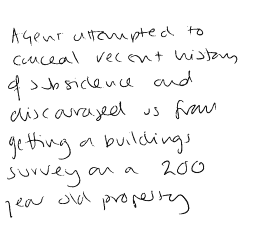 Agent attempted to
conceal recent history
of subsidence and
discouraged us from
getting a buildings
survey on a 200
year old property